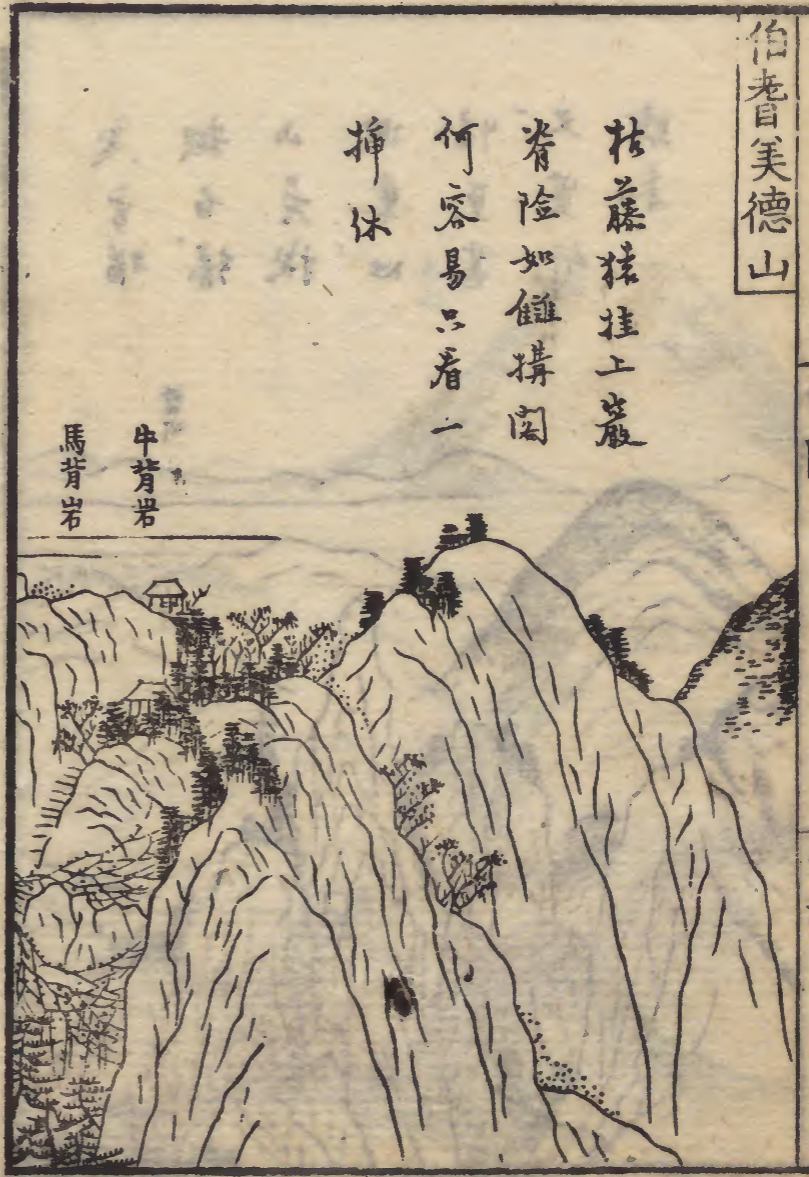 伯耆美徳山
枯藤猿挂上巖
脊險如雠搆閣
何容易只看一
揮休
牛背岩
馬背岩